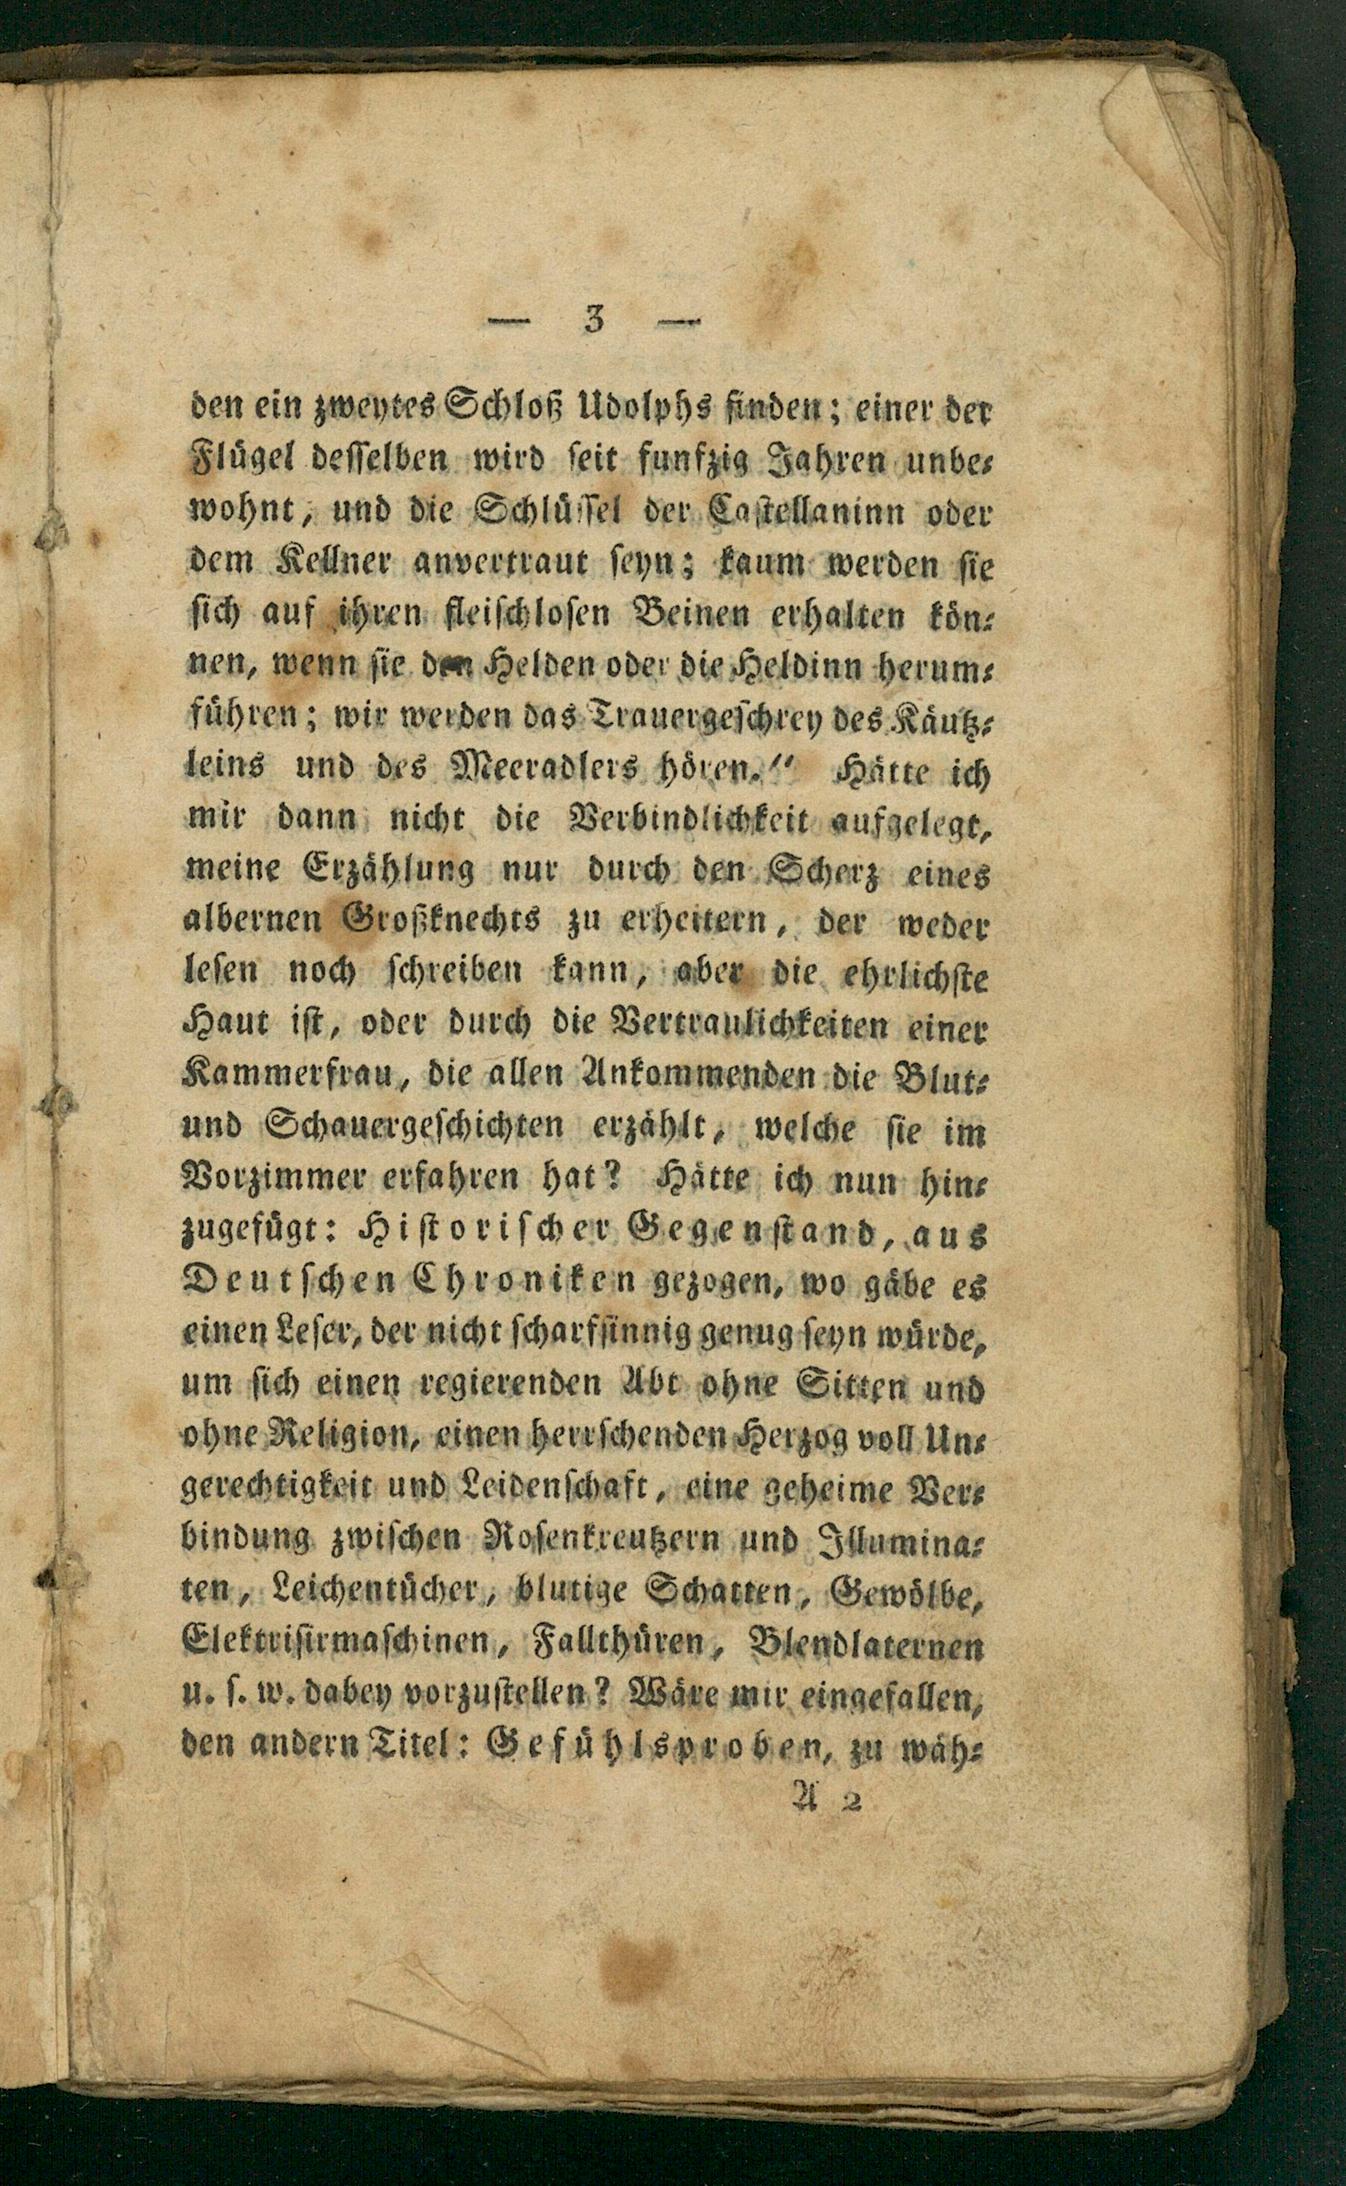 — 3 —
den ein zweytes Schloß Udolphs finden; einer der
Flügel desselben wird seit funfzig Jahren unbe-
wohnt, und die Schlüssel der Castellaninn oder
dem Kellner anvertraut seyn; kaum werden sie
sich auf ihren fleischlosen Beinen erhalten kön-
nen, wenn sie den Helden oder die Heldinn herum-
führen; wir werden das Trauergeschrey des Käutz-
leins und des Meeradlers hören.“ Hätte ich
mir dann nicht die Verbindlichkeit aufgelegt,
meine Erzählung nur durch den Scherz eines
albernen Großknechts zu erheitern, der weder
lesen noch schreiben kann, aber die ehrlichste
Haut ist, oder durch die Vertraulichkeiten einer
Kammerfrau, die allen Ankommenden die Blut-
und Schauergeschichten erzählt, welche sie im
Vorzimmer erfahren hat? Hätte ich nun hin-
zugefügt: Historischer Gegenstand, aus
Deutschen Chroniken gezogen, wo gäbe es
einen Leser, der nicht scharfsinnig genug seyn würde,
um sich einen regierenden Abt ohne Sitten und
ohne Religion, einen herrschenden Herzog voll Un-
gerechtigkeit und Leidenschaft, eine geheime Ver-
bindung zwischen Rosenkreutzern und Illumina-
ten, Leichentücher, blutige Schatten, Gewölbe,
Elektrisirmaschinen, Fallthüren, Blendlaternen
u. s. w. dabey vorzustellen? Wäre mir eingefallen,
den andern Titel: Gefühlsproben, zu wäh-
A 2